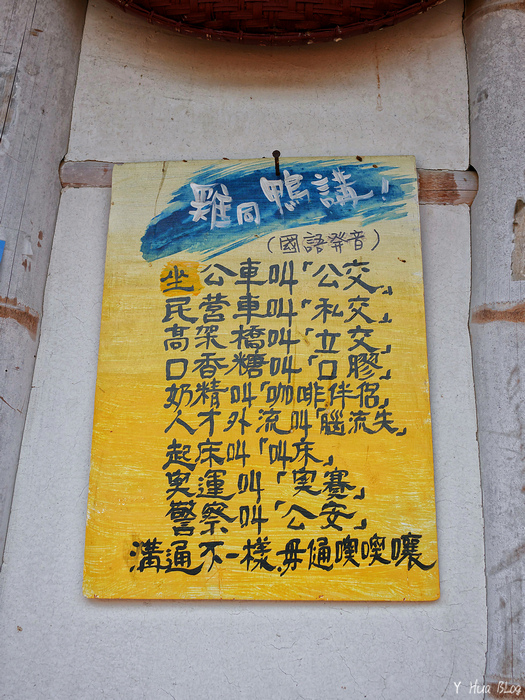 雞同鴨講!
(國語發音)
坐公車叫「公交」
民營車叫「私交」
高架橋叫「立交」
口香糖叫「口膠」
奶精叫「咖啡伴侶」
人才外流叫「腦流失」
起床叫「叫床」
奧運叫「奧賽」
警察叫「公安」
溝通不一樣.毋通噢噢嚷
Y Hua BLog